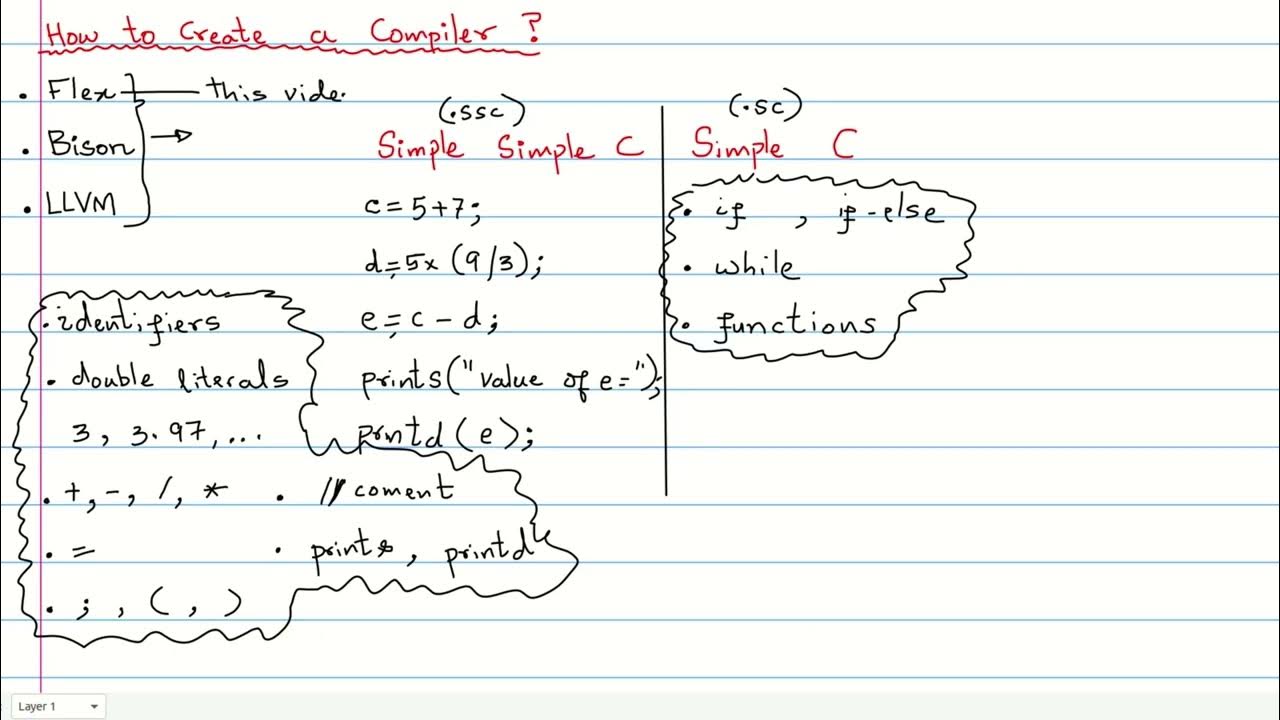 How to Create a Compiler ?
. Flex this vide.
. Bison
. LLVM
(.ssc)
Simple Simple C
c = 5+7;
d = 5x (9/3);
e = c - d;
prints("value of e=");
printd (e);
(.sc)
Simple C
. if , if-else
. while
. functions
. identifiers
. double literals
3, 3.97, ...
. +, -, /, *
. =
. ; , ( , )
. // coment
. prints, printd
Layer 1